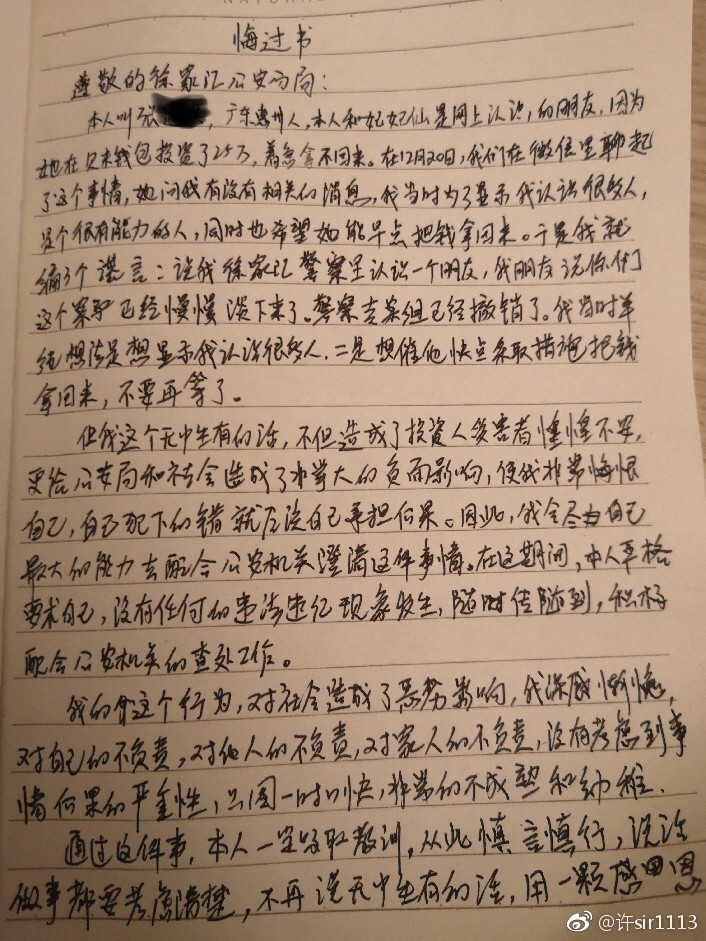 悔过书
尊敬的徐家汇公安分局：
本人叫张，广东惠州人，本人和妃妃仙是网上认识的朋友，因为
她在贝米钱包投资了25万，着急拿不回来。在12月20日，我们在微信里聊起
了这个事情，她问我有没有相关的消息，我当时为了显示我认识很多人，
是个很有能力的人，同时也希望她能早点把钱拿回来。于是我就
编了个谎言：说我徐家汇警察里认识一个朋友，我朋友说你们
这个案子已经慢慢淡下来了。警察专案组已经撤销了。我当时单
纯想法是想显示我认识很多人，二是想催他快点采取措施把钱
拿回来，不要再等了。
但我这个无中生有的话，不但造成了投资人受害者惶惶不安，
更给公安局和社会造成了非常大的负面影响，使我非常悔恨
自己，自己犯下的错就应该自己承担后果。因此，我会尽自己
最大的能力去配合公安机关澄清这件事情。在这期间，本人严格
要求自己，没有任何的违法违纪现象发生，随时传随到，积极
配合公安机关的查处工作。
我的这个行为，对社会造成了恶劣影响，我深感惭愧，
对自己的不负责，对他人的不负责，对家人的不负责，没有考虑到事
情后果的严重性，只图一时口快，非常的不成熟和幼稚。
通过这件事，本人一定吸取教训，从此慎言慎行，说话
做事都要考虑清楚，不再说无中生有的话，用一颗感恩
@许sir1113